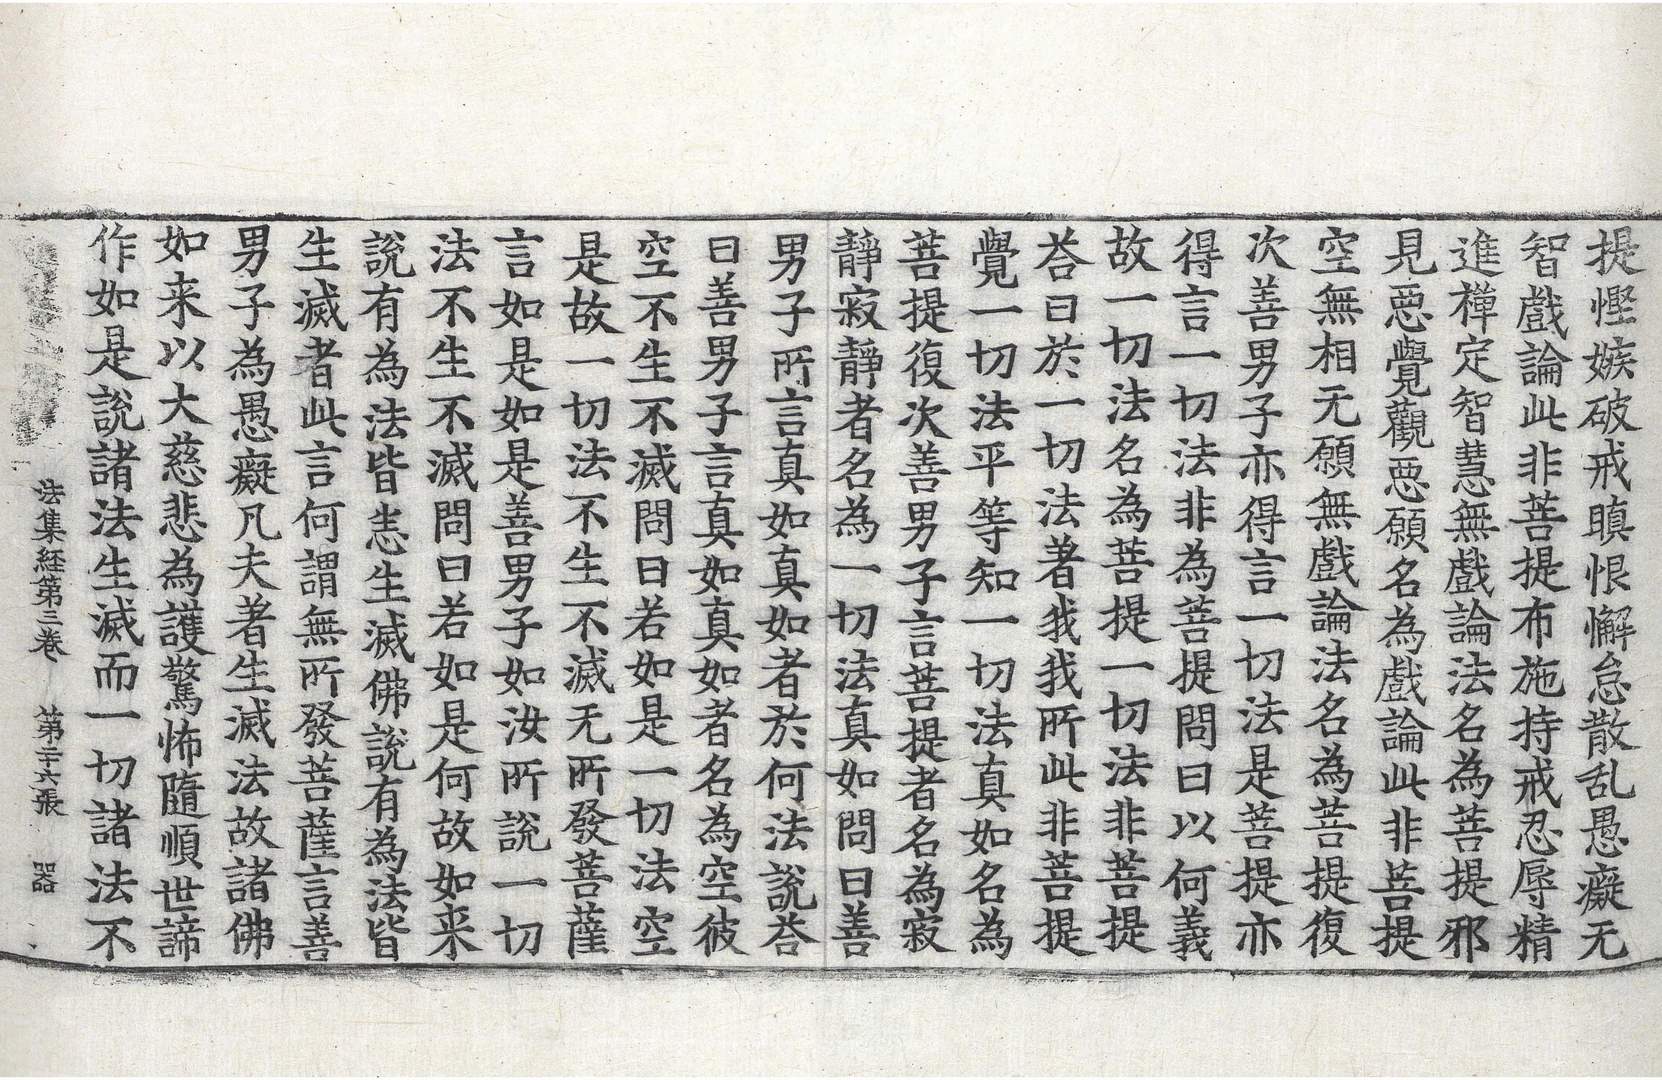 提慳嫉破戒瞋恨懈怠散乱愚癡无
智戲論此非菩提布施持戒忍辱精
進禪定智慧無戲論法名為菩提邪
見惡覺觀惡願名為戲論此非菩提
空無相无願無戲論法名為菩提復
次善男子亦得言一切法是菩提亦
得言一切法非為菩提問曰以何義
故一切法名為菩提一切法非菩提
荅曰於一切法著我我所此非菩提
覺一切法平等知一切法真如名為
菩提復次善男子言菩提者名為寂
靜寂靜者名為一切法真如問曰善
男子所言真如真如者於何法說荅
曰善男子言真如真如者名為空彼
空不生不滅問曰若如是一切法空
是故一切法不生不滅无所發菩薩
言如是如是善男子如汝所說一切
法不生不滅問曰若如是何故如来
說有為法皆恚生滅佛說有為法皆
生滅者此言何謂無所發菩薩言善
男子為愚癡凡夫著生滅法故諸佛
如来以大慈悲為護驚怖隨順世諦
作如是說諸法生滅而一切諸法不
法集経第三卷 第二十六張 器